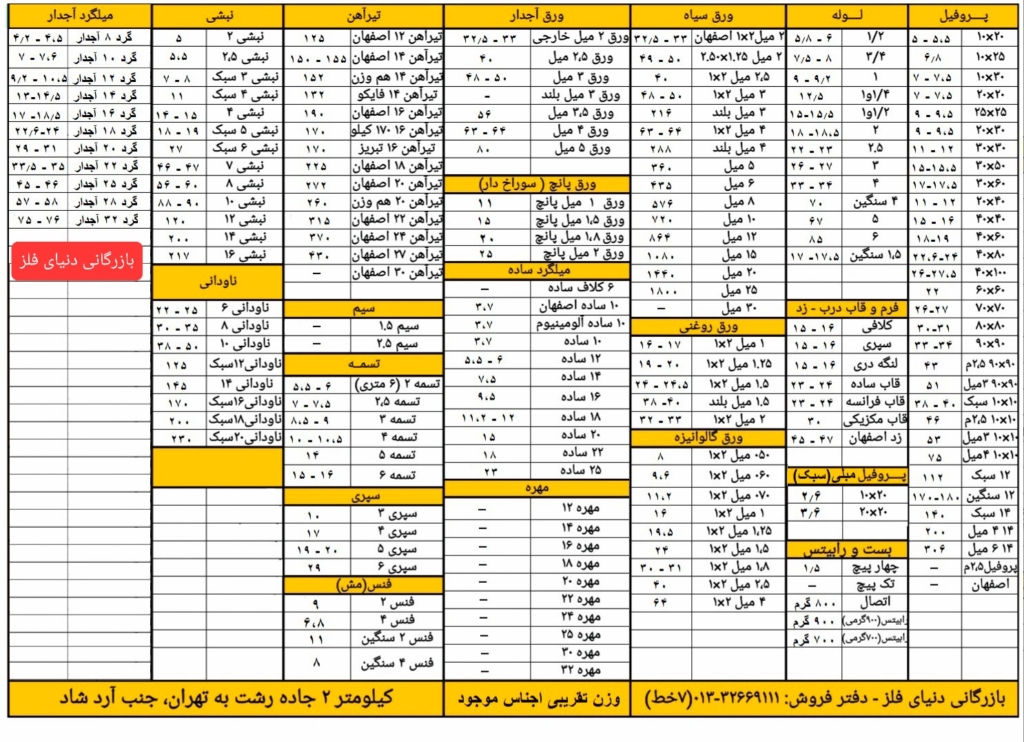 پـــروفیل
۱۰×۲۰ ۵ - ۵،۵
۱۰×۲۵ ۴٫۸
۱۰×۳۰ ۷ - ۷،۵
۲۰×۲۰ ۷ - ۷،۵
۲۵×۲۵ ۹ - ۹،۵
۲۰×۳۰ ۹ - ۹،۵
۳۰×۳۰ ۱۱ - ۱۲
۳۰×۵۰ ۱۵-۱۵،۵
۳۰×۶۰ ۱۷-۱۷،۵
۲۰×۴۰ ۱۱ - ۱۲
۴۰×۴۰ ۱۵ - ۱۶
۴۰×۶۰ ۱۸-۱۹
۴۰×۸۰ ۲۲،۶-۲۴
۴۰×۱۰۰ ۲۶-۲۷،۵
۶۰×۶۰ ۲۲
۷۰×۷۰ ۲۶-۲۷
۸۰×۸۰ ۳۰-۳۱
۹۰×۹۰ ۳۳ - ۳۴
۹۰×۹۰ ۲،۵م ۴۳
۹۰×۹۰ ۳میل ۵۱
۱۰×۱۰ سبک ۳۸ - ۴۰
۱۰×۱۰ ۲،۵م ۴۶
۱۰×۱۰ ۳میل ۵۳
۱۰×۱۰ ۴میل ۷۵
۱۲ سبک ۱۱۲
۱۲ سنگین ۱۷۰-۱۸۰
۱۴ سبک ۱۴۰
۱۴ ۴ میل ۲۰۰
۱۴ ۶ میل ۳۰۶
پروفیل۲،۵م –
اصفهان –
لـــوله
۱/۲ ۵/۸ - ۶
۳/۴ ۷/۵ - ۸
۱ ۹ - ۹/۲
۱/۴و۱ ۱۲٫۵
۱/۲و۱ ۱۵-۱۵٫۵
۲ ۱۸ -۱۸،۵
۲٫۵ ۲۲ - ۲۳
۳ ۲۶ - ۲۷
۴ ۳۳ - ۳۴
۴ سنگین ۷۰
۵ ۶۷
۶ ۸۵
۱،۵ سنگین ۱۷ -۱۷،۵
فرم و قاب درب - زد
کلافی ۱۵ - ۱۶
سپری ۱۵ - ۱۶
لنگه دری ۱۵ - ۱۶
قاب ساده ۲۳ - ۲۴
قاب فرانسه ۲۳ - ۲۴
قاب مکزیکی ۳۰
زد اصفهان ۴۵ - ۴۷
پـــروفیل مبلی(سبک)
۱۰×۲۰ ۲٫۶
۲۰×۲۰ ۳٫۶
بست و رابیتس
چهار پیچ ۱٫۵
تک پیچ –
اتصال ۸۰۰ گرم
رابیتس(۹۰۰گرمی) ۹۰۰ گرم
رابیتس(۷۰۰گرمی) ۷۰۰ گرم
ورق سیاه
۲ میل۱×۲ اصفهان ۳۲٫۵ - ۳۳
۲ میل ۱.۲۵×۲.۵۰ ۴۹ - ۵۰
۲،۵ میل ۱×۲ ۴۰
۳ میل ۱×۲ ۴۸ - ۵۰
۳ میل بلند ۲۱۶
۴ میل ۱×۲ ۶۳ - ۶۴
۴ میل بلند ۲۸۸
۵ میل ۳۶۰
۶ میل ۴۳۵
۸ میل ۵۷۶
۱۰ میل ۷۲۰
۱۲ میل ۸۶۴
۱۵ میل ۱۰۸۰
۲۰ میل ۱۴۴۰
۲۵ میل ۱۸۰۰
۳۰ میل –
ورق روغنی
۱ میل ۱×۲ ۱۶ - ۱۷
۱،۲۵ میل ۱×۲ ۱۹ - ۲۰
۱،۵ میل ۱×۲ ۲۴ - ۲۴،۵
۱،۵ میل بلند ۳۸ - ۴۰
۲ میل ۱×۲ ۳۲ - ۳۳
ورق گالوانیزه
۰۵۰ میل ۱×۲ ۸
۰۶۰ میل ۱×۲ ۹،۶
۰۷۰ میل ۱×۲ ۱۱،۲
۱ میل ۱×۲ ۱۶
۱،۲۵ میل ۱×۲ ۱۹،۵
۱،۵ میل ۱×۲ ۲۴
۱،۸ میل ۱×۲ ۳۰ - ۳۱
۲،۵ میل ۱×۲ ۴۰
۴ میل ۱×۲ ۶۴
ورق آجدار
ورق ۲ میل خارجی ۳۲٫۵ - ۳۳
ورق ۲،۵ میل ۴۰
ورق ۳ میل ۴۸ - ۵۰
ورق ۳ میل بلند –
ورق ۳،۵ میل ۵۶
ورق ۴ میل ۶۳ - ۶۴
ورق ۵ میل ۸۰
ورق پانچ ( سوراخ دار)
ورق ۱ میل پانچ ۱۱
ورق ۱،۵ میل پانچ ۱۵
ورق ۱،۸ میل پانچ ۲۰
ورق ۲ میل پانچ ۲۵
میلگرد ساده
۶ کلاف ساده –
۱۰ ساده اصفهان ۳،۷
۱۰ ساده آلومینیوم ۳،۷
۱۰ ساده ۳،۷
۱۲ ساده ۵،۵ - ۶
۱۴ ساده ۷،۵
۱۶ ساده ۹،۵
۱۸ ساده ۱۱،۲ - ۱۲
۲۰ ساده ۱۵
۲۲ ساده ۱۸
۲۵ ساده ۲۳
مهره
مهره ۱۲ –
مهره ۱۴ –
مهره ۱۶ –
مهره ۱۸ –
مهره ۲۰ –
مهره ۲۲ –
مهره ۲۴ –
مهره ۲۵ –
مهره ۳۰ –
مهره ۳۲ –
تیرآهن
تیرآهن ۱۲ اصفهان ۱۲۵
تیرآهن ۱۴ اصفهان ۱۵۰ - ۱۵۵
تیرآهن ۱۴ هم وزن ۱۵۲
تیرآهن ۱۴ فایکو ۱۳۲
تیرآهن ۱۶ اصفهان ۱۹۰
تیرآهن ۱۶ ۱۷۰ کیلو ۱۷۰
تیرآهن ۱۶ تبریز ۱۷۰
تیرآهن ۱۸ اصفهان ۲۲۵
تیرآهن ۲۰ اصفهان ۲۷۲
تیرآهن ۲۰ هم وزن ۲۶۰
تیرآهن ۲۲ اصفهان ۳۱۵
تیرآهن ۲۴ اصفهان ۳۷۰
تیرآهن ۲۷ اصفهان ۴۳۰
تیرآهن ۳۰ اصفهان –
سیم
سیم ۱،۵ –
سیم ۲،۵ –
تسمـــه
تسمه ۲ (۶ متری) ۵،۵ - ۶
تسمه ۲،۵ ۷ - ۷،۵
تسمه ۳ ۸،۵ - ۹
تسمه ۴ ۱۰ - ۱۰،۵
تسمه ۵ ۱۴
تسمه ۶ ۱۵ - ۱۶
سپری
سپری ۳ ۱۰
سپری ۴ ۱۷
سپری ۵ ۱۹ - ۲۰
سپری ۶ ۲۹
فنس(مش)
فنس ۲ ۹
فنس ۴ ۶٫۸
فنس ۲ سنگین ۱۱
فنس ۴ سنگین ۸
نبشی
نبشی ۲ ۵
نبشی ۲،۵ ۵،۵
نبشی ۳ سبک ۷ - ۸
نبشی ۴ سبک ۱۱
نبشی ۴ ۱۴ - ۱۵
نبشی ۵ سبک ۱۸ - ۱۹
نبشی ۶ سبک ۲۷
نبشی ۷ ۴۶ - ۴۷
نبشی ۸ ۵۶ - ۶۰
نبشی ۱۰ ۸۸ - ۹۰
نبشی ۱۲ ۱۲۰
نبشی ۱۴ ۲۰۰
نبشی ۱۶ ۲۱۷
ناودانی
ناودانی ۶ ۲۲ - ۲۵
ناودانی ۸ ۳۰ - ۳۵
ناودانی ۱۰ ۳۸ - ۵۰
ناودانی۱۲سبک ۱۲۵
ناودانی ۱۴ ۱۴۵
ناودانی۱۶سبک ۱۷۰
ناودانی۱۸سبک ۲۰۰
ناودانی۲۰سبک ۲۳۰
میلگرد آجدار
گرد ۸ آجدار ۴/۲ - ۴،۵
گرد ۱۰ آجدار ۶ - ۷
گرد ۱۲ آجدار ۹/۲ - ۱۰،۵
گرد ۱۴ آجدار ۱۳-۱۴/۵
گرد ۱۶ آجدار ۱۷ -۱۸/۵
گرد ۱۸ آجدار ۲۲/۶-۲۴
گرد ۲۰ آجدار ۲۹ - ۳۱
گرد ۲۲ آجدار ۳۳/۵ - ۳۵
گرد ۲۵ آجدار ۴۵ - ۴۶
گرد ۲۸ آجدار ۵۷ - ۵۸
گرد ۳۲ آجدار ۷۵ - ۷۶
بازرگانی دنیای فلز
بازرگانی دنیای فلز - دفتر فروش: ۳۲۶۶۹۱۱۱-۰۱۳(۷خط)
وزن تقریبی اجناس موجود
کیلومتر ۲ جاده رشت به تهران، جنب آرد شاد